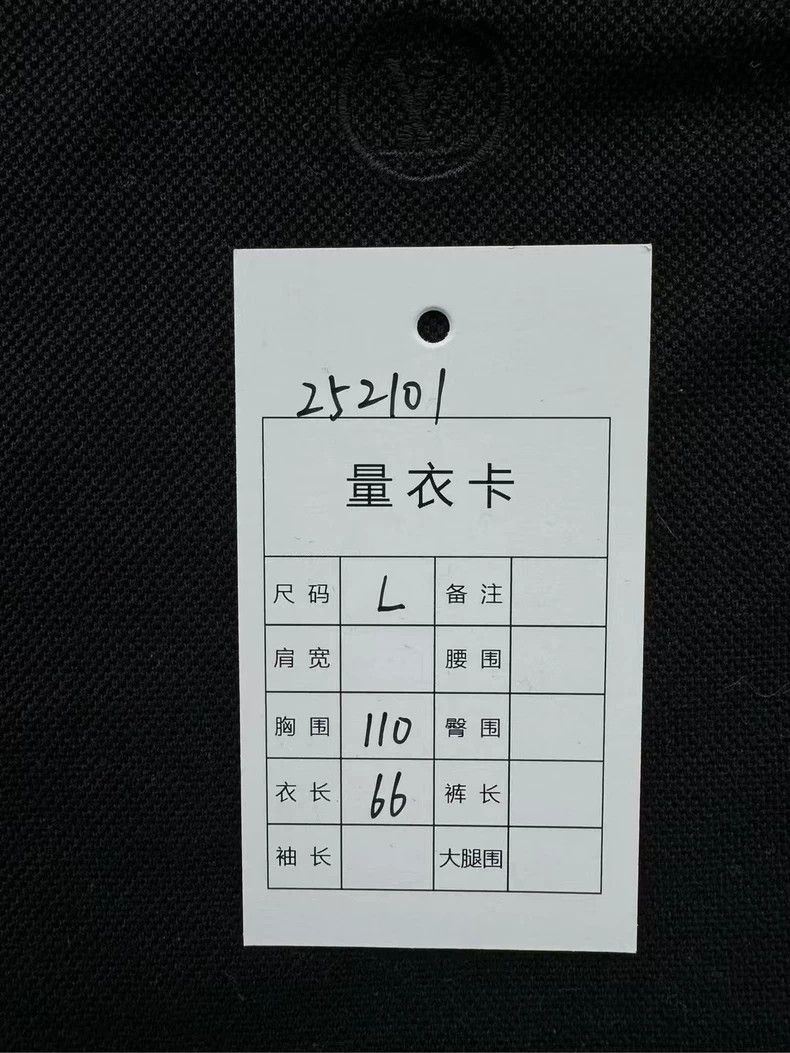 252101
量衣卡
尺码 L 备注
肩宽 腰围
胸围 110 臀围
衣长 66 裤长
袖长 大腿围